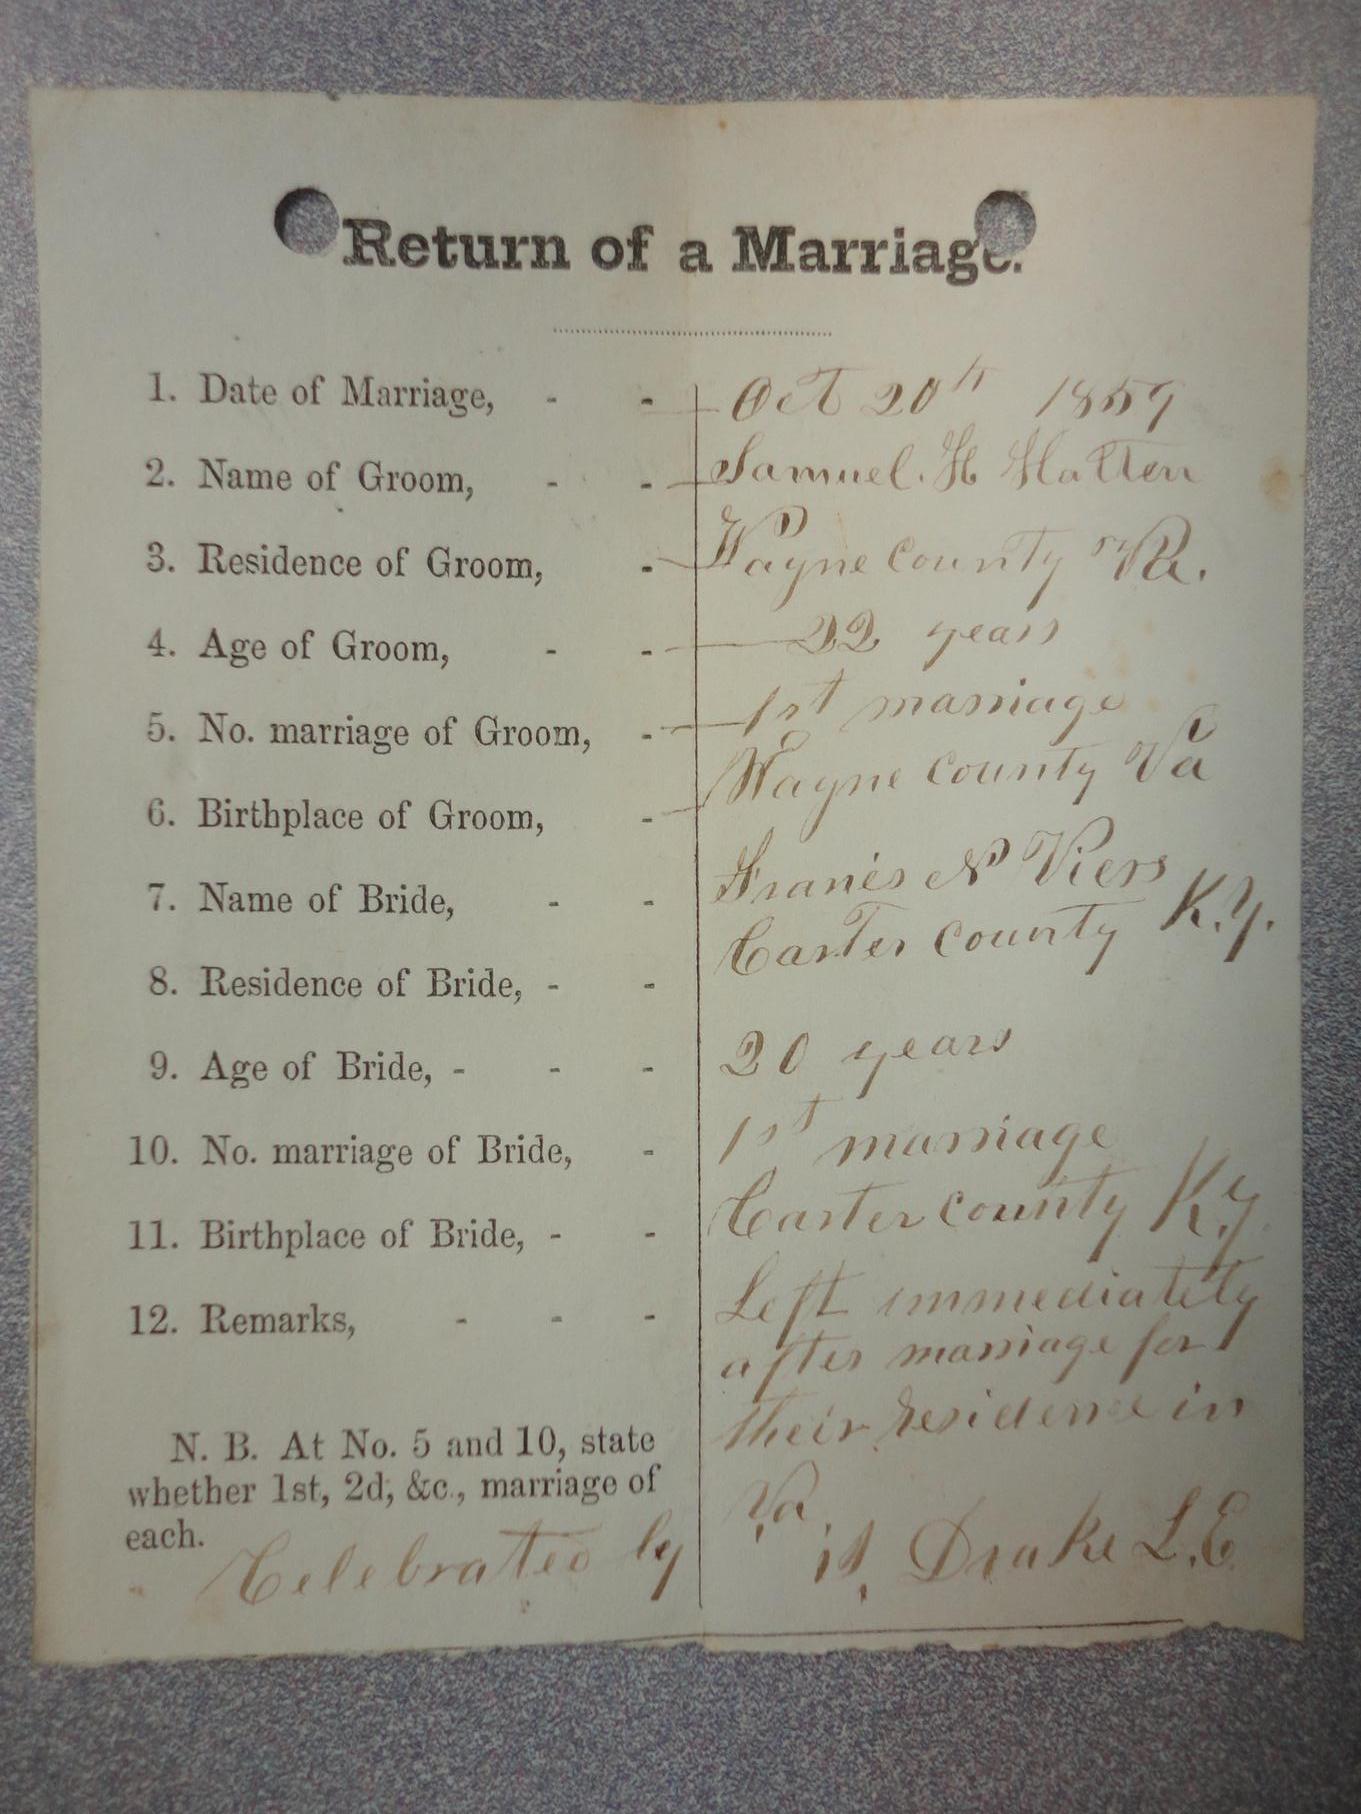 Return of a Marriage.
1. Date of Marriage, - - Oct 20th 1859
2. Name of Groom, - - Samuel. H Hatten
3. Residence of Groom, - Wayne County Va.
4. Age of Groom, - - 22 years
5. No. marriage of Groom, - 1st marriage
6. Birthplace of Groom, - Wayne County Va
7. Name of Bride, - - Francis N Viers
8. Residence of Bride, - - Carter County K.y.
9. Age of Bride, - - - 20 years
10. No. marriage of Bride, - 1st marriage
11. Birthplace of Bride, - - Carter County K.y.
12. Remarks, - - - Left immediately
after marriage for
their residence in
Va
N. B. At No. 5 and 10, state
whether 1st, 2d, &c., marriage of
each.
Celebrated by Drake L.E